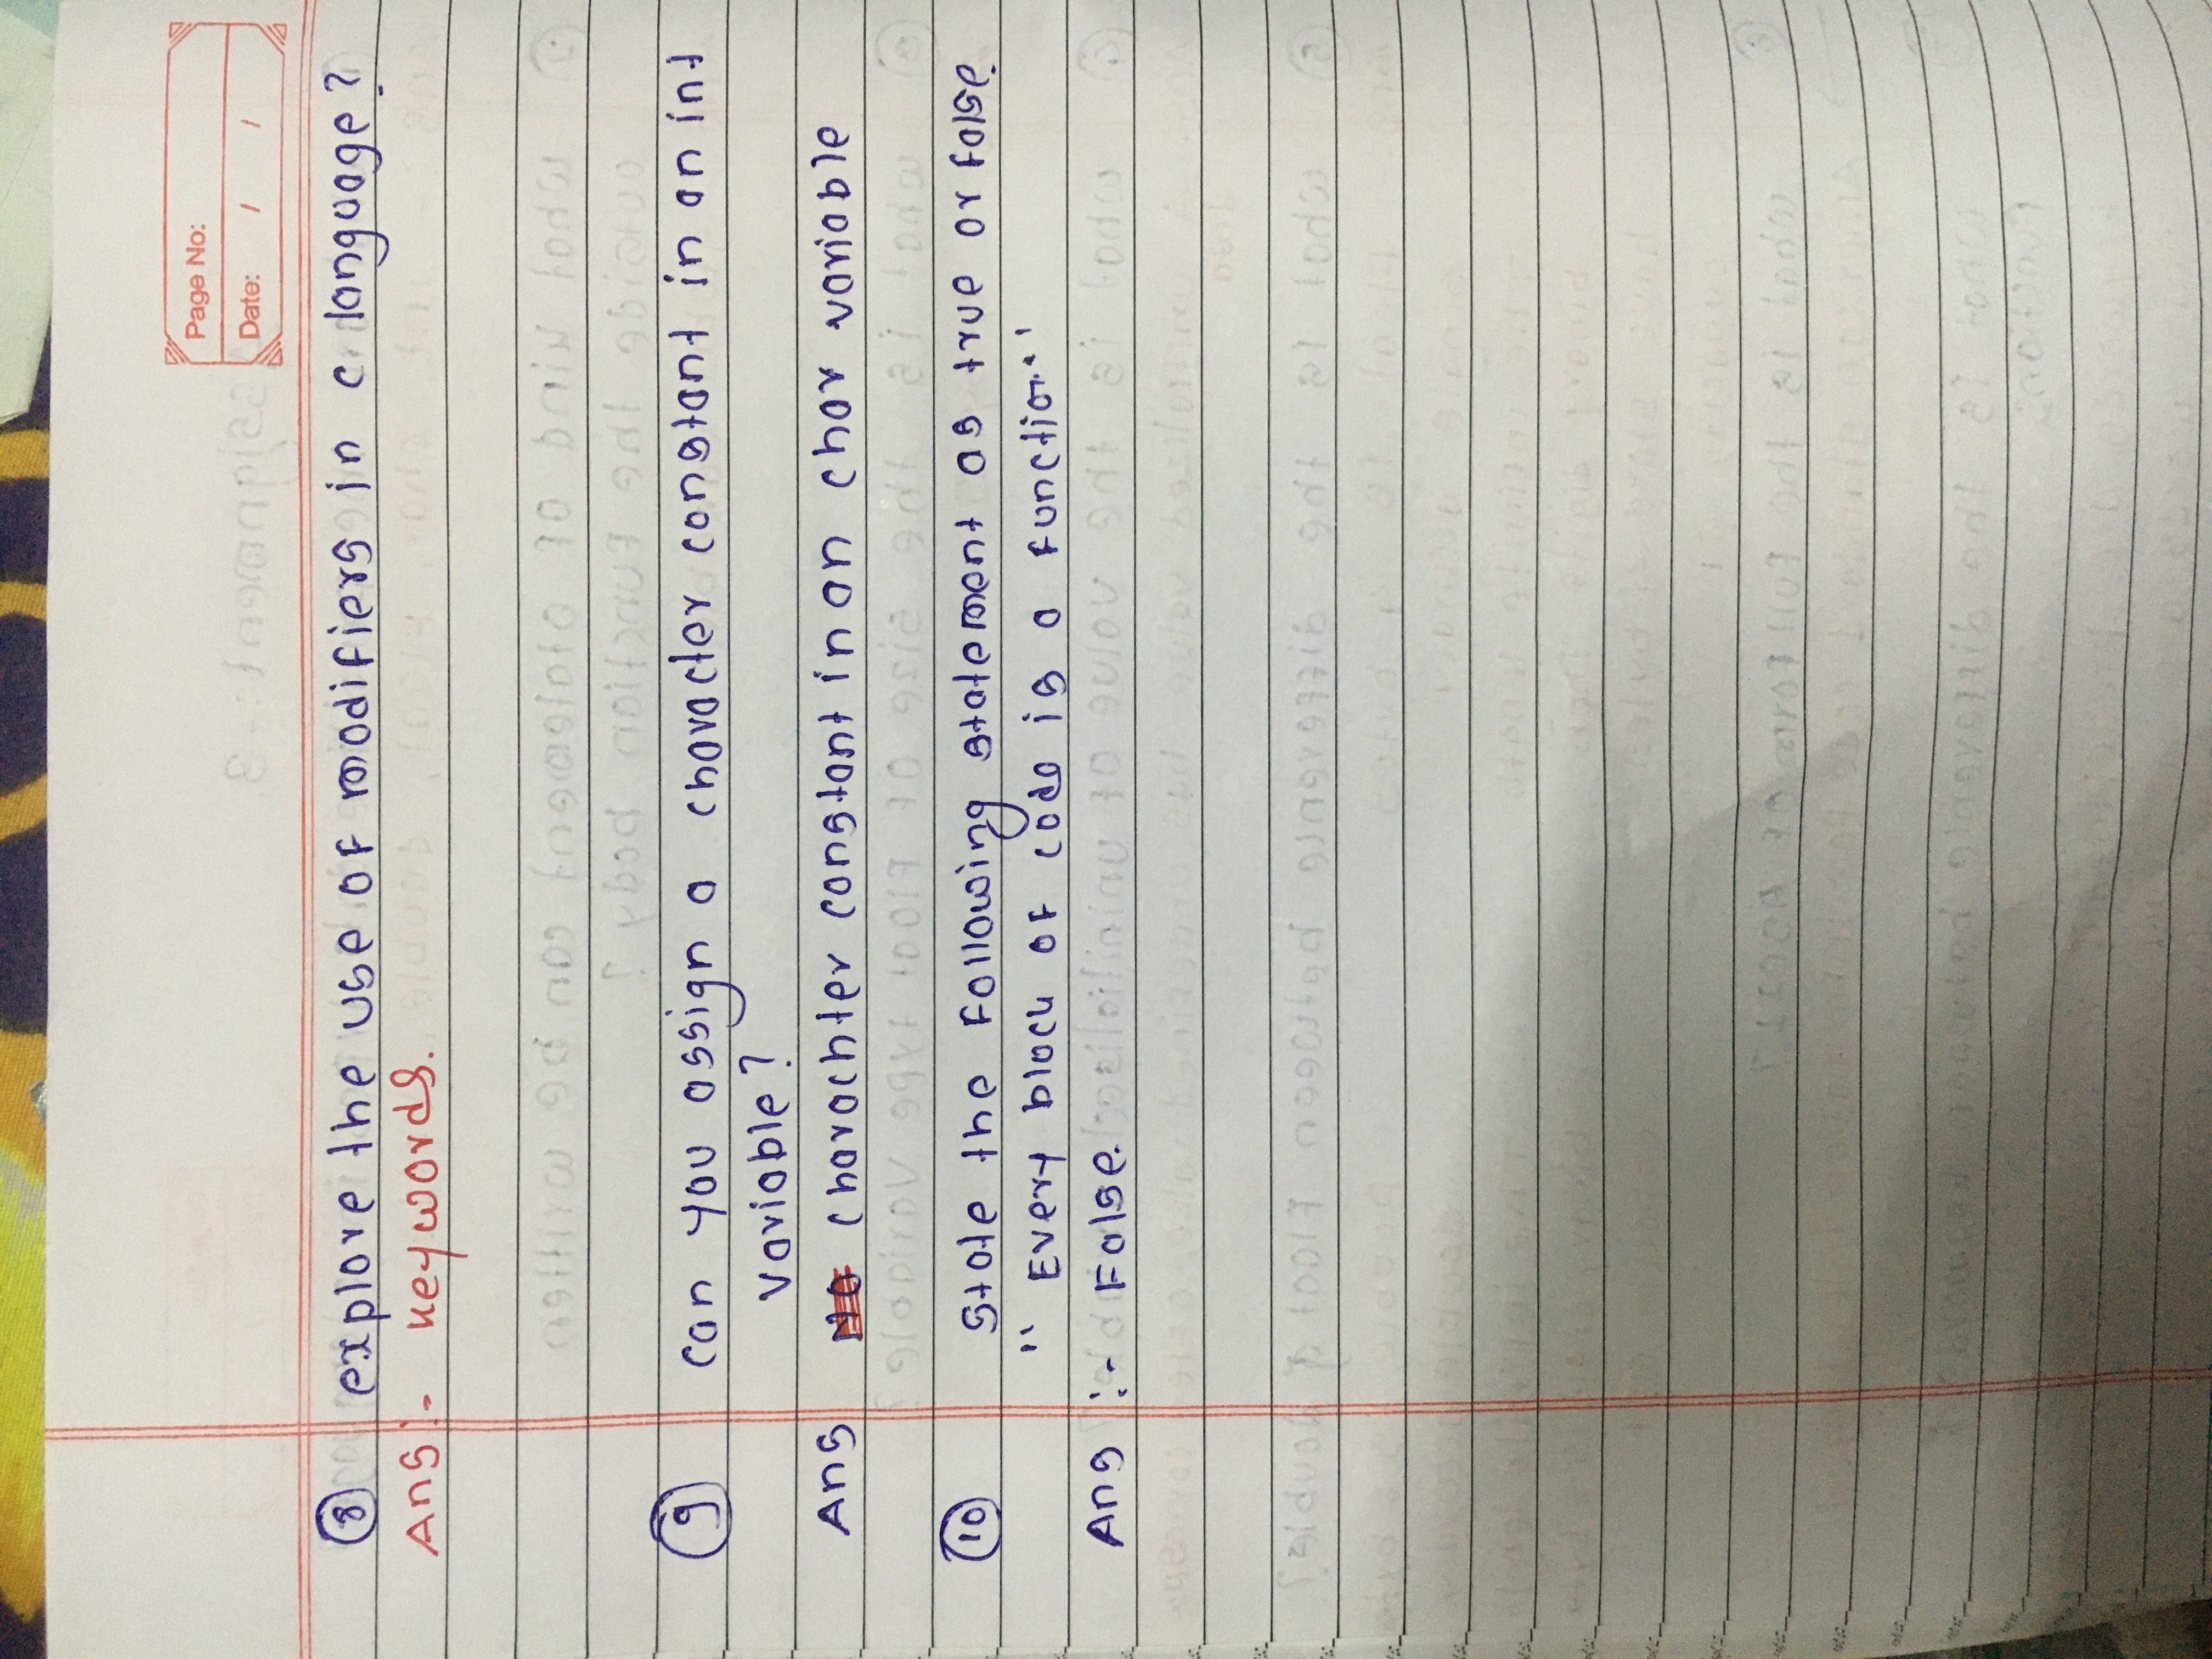 Page No:
Date: / /
⑧ explore the use of modifiers in c language?
Ans :- keywords.
⑨ can you assign a character constant in an int
variable?
Ans charachter constant in an char variable
⑩ State the following statement as true or false.
" Every block of code is a function"
Ans :- False.